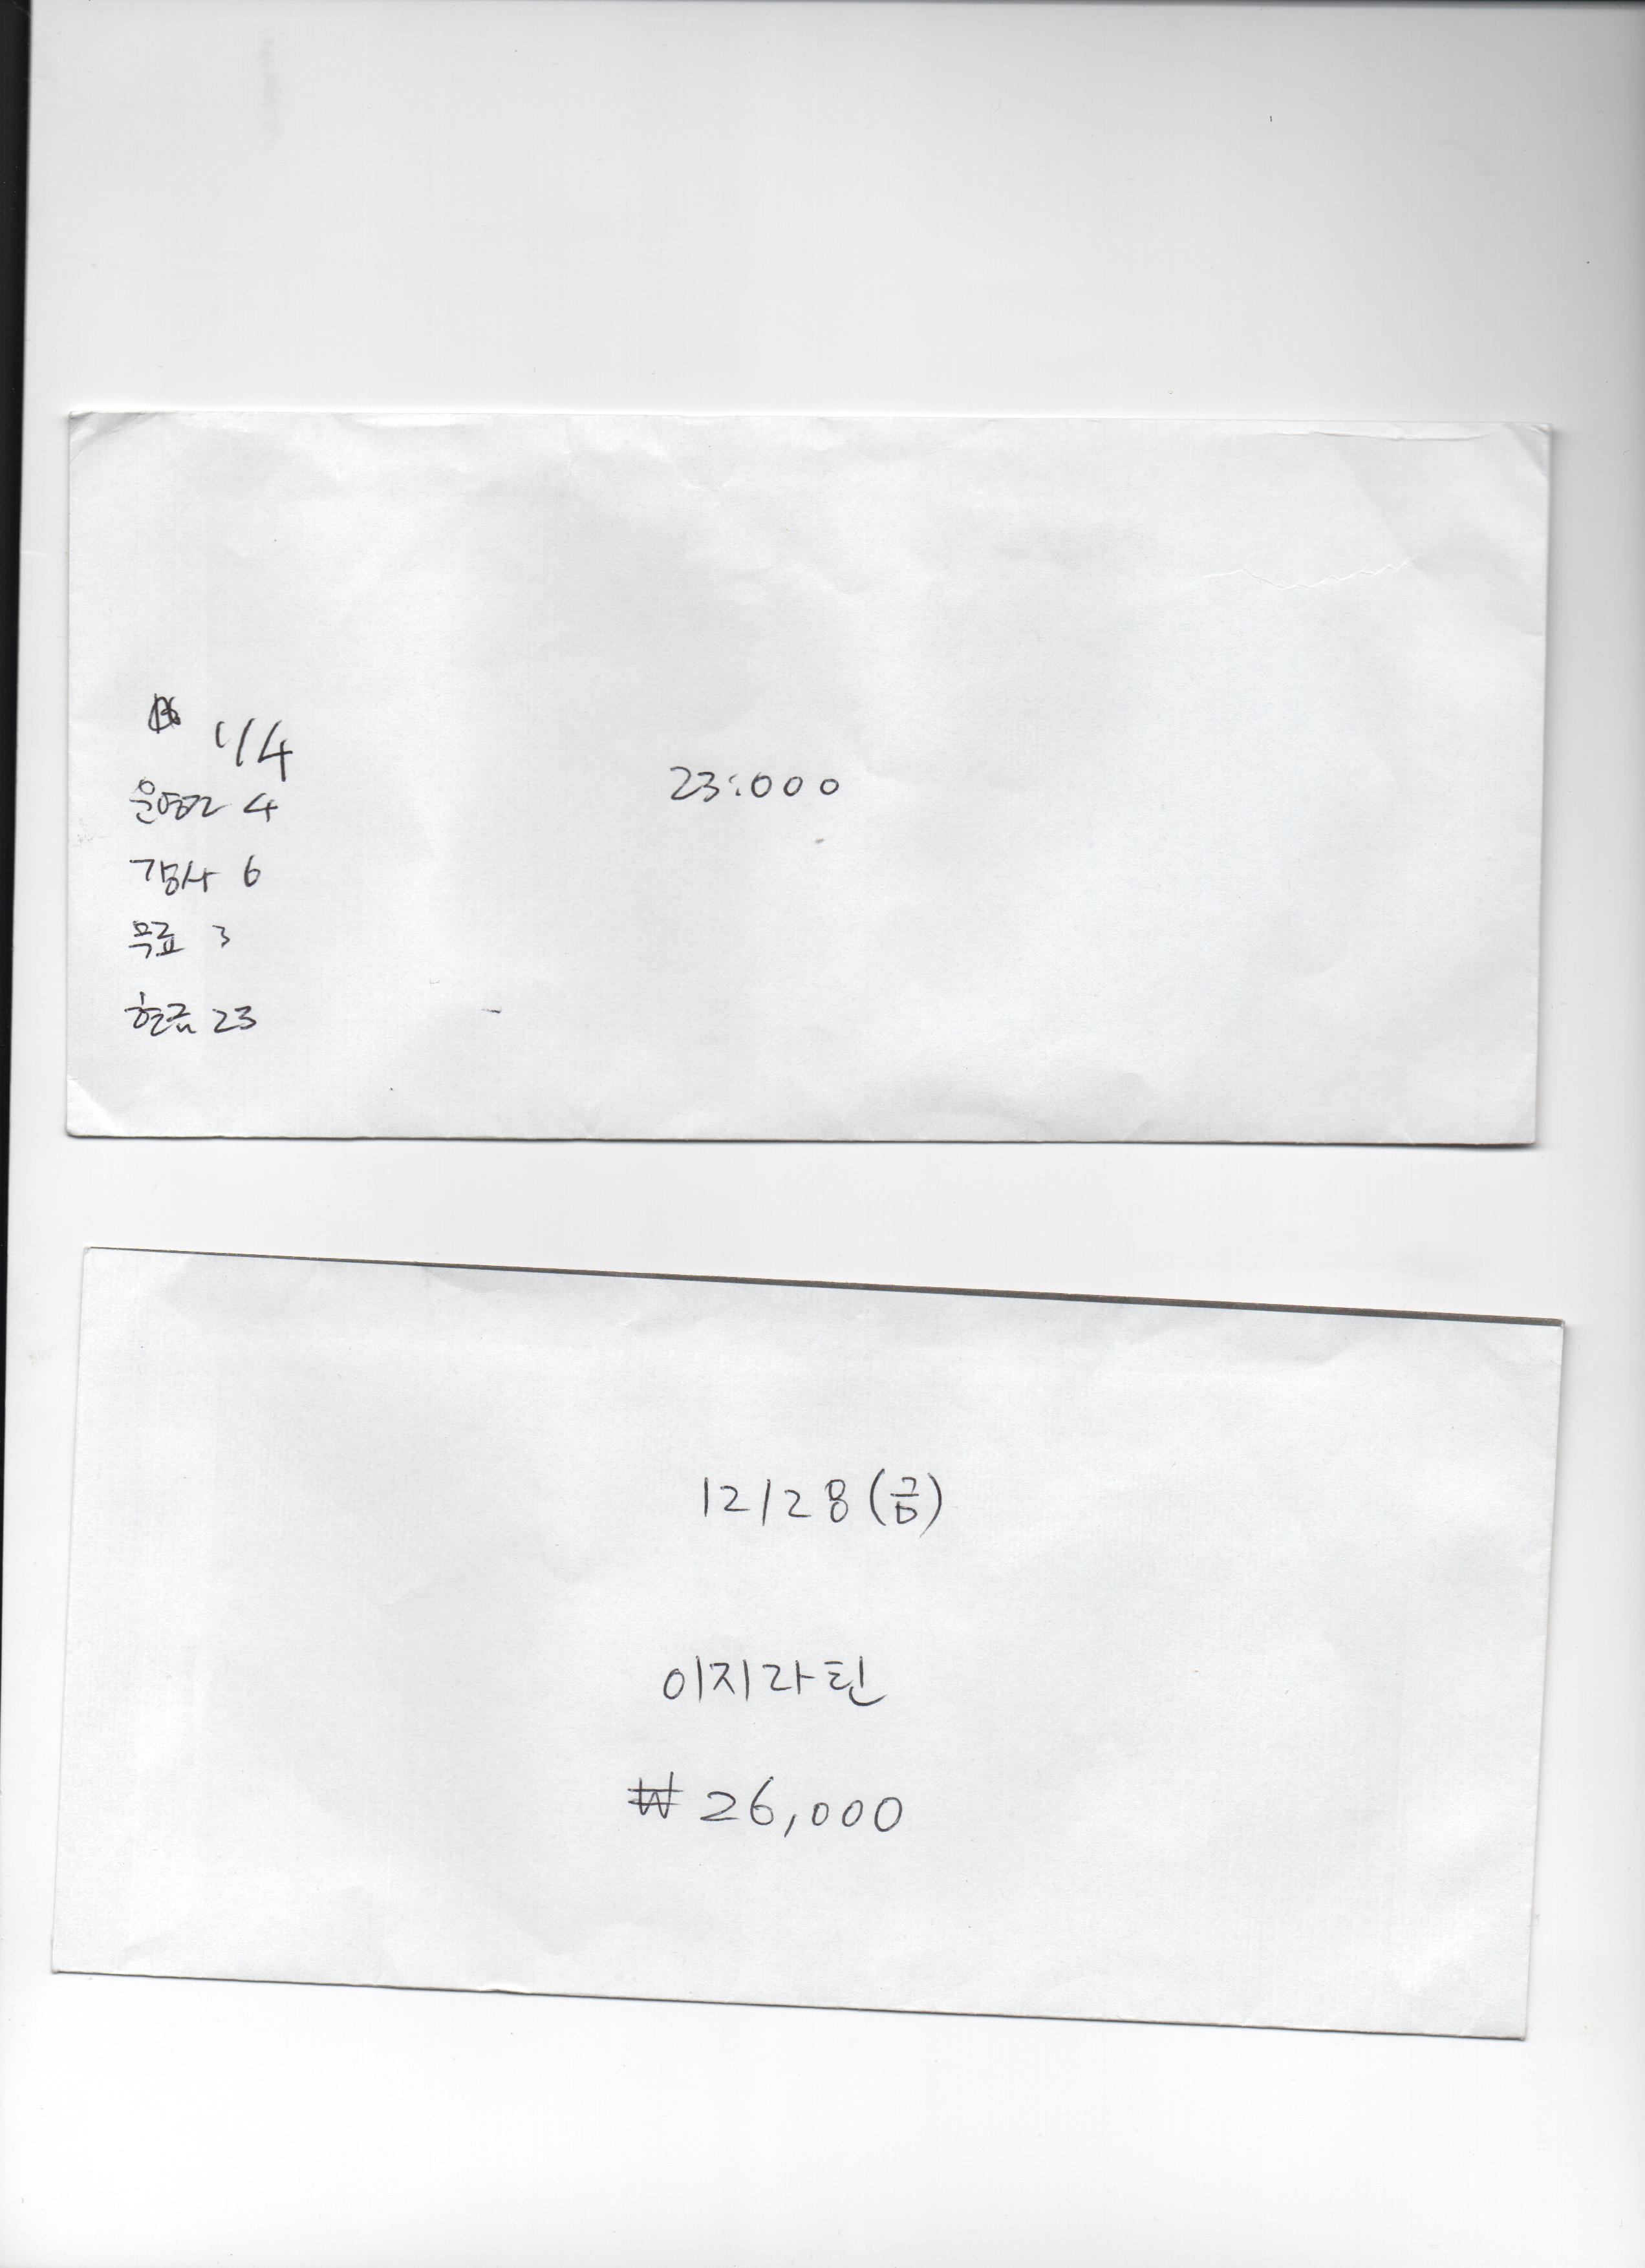 1/4
운영진 4
강사 6
무료 3
현금 23
23:000
12/28(금)
이지라틴
₩26,000